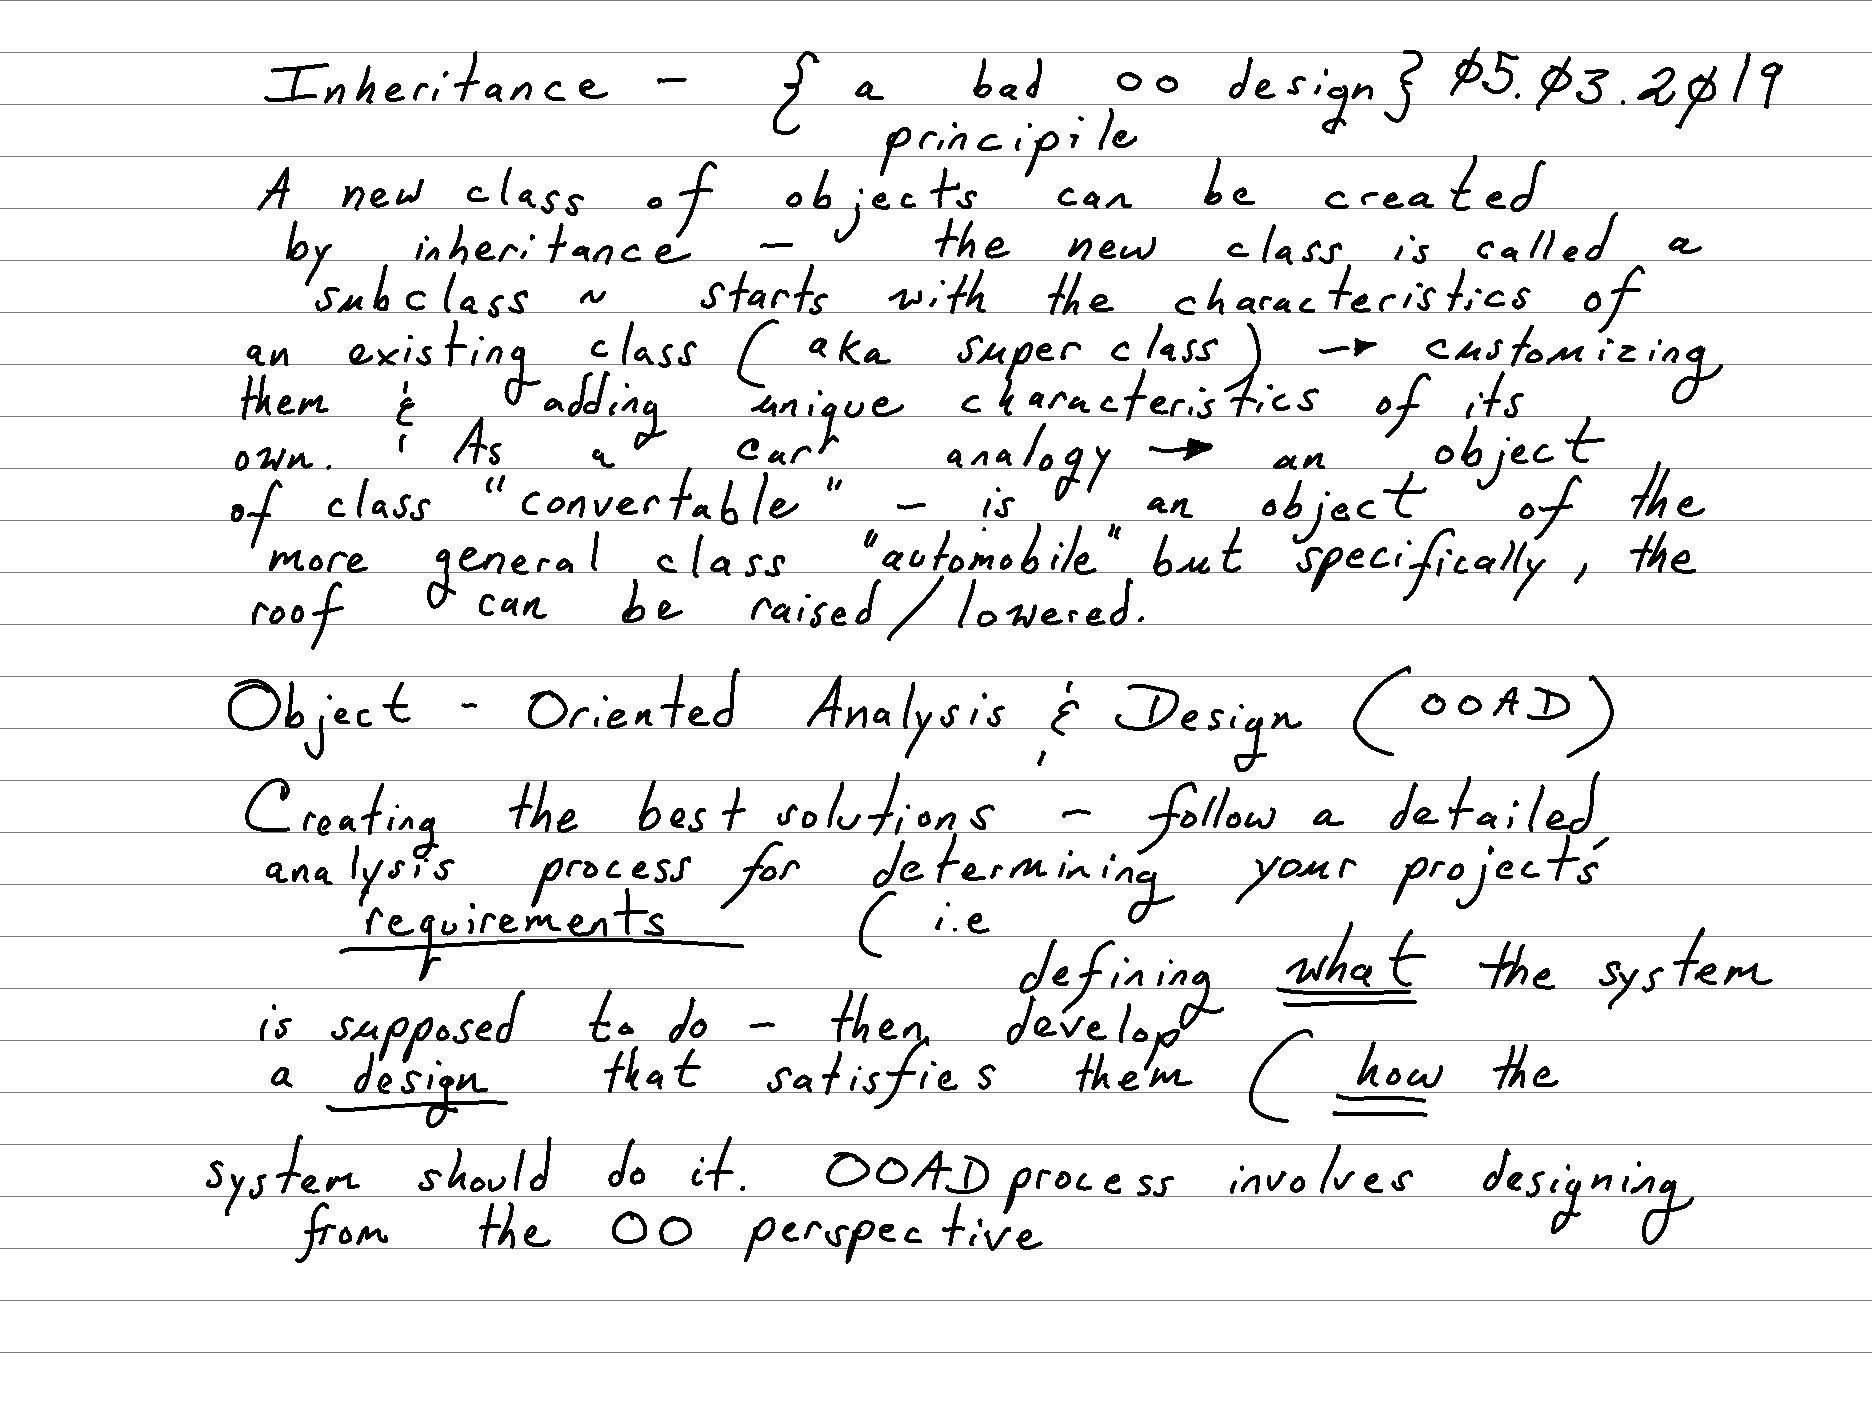 Inheritance - { a bad OO design } Ø5.Ø3.2Ø19
principile
A new class of objects can be created
by inheritance - the new class is called a
subclass ~ starts with the characteristics of
an existing class (aka super class) → customizing
them & adding unique characteristics of its
own. As a car analogy → an object
of class "convertable" - is an object of the
more general class "automobile" but specifically, the
roof can be raised/lowered.
Object - Oriented Analysis & Design (OOAD)
Creating the best solutions - follow a detailed
analysis process for determining your project's
requirements ( i.e
defining what the system
is supposed to do - then develop
a design that satisfies them ( how the
system should do it. OOAD process involves designing
from the OO perspective